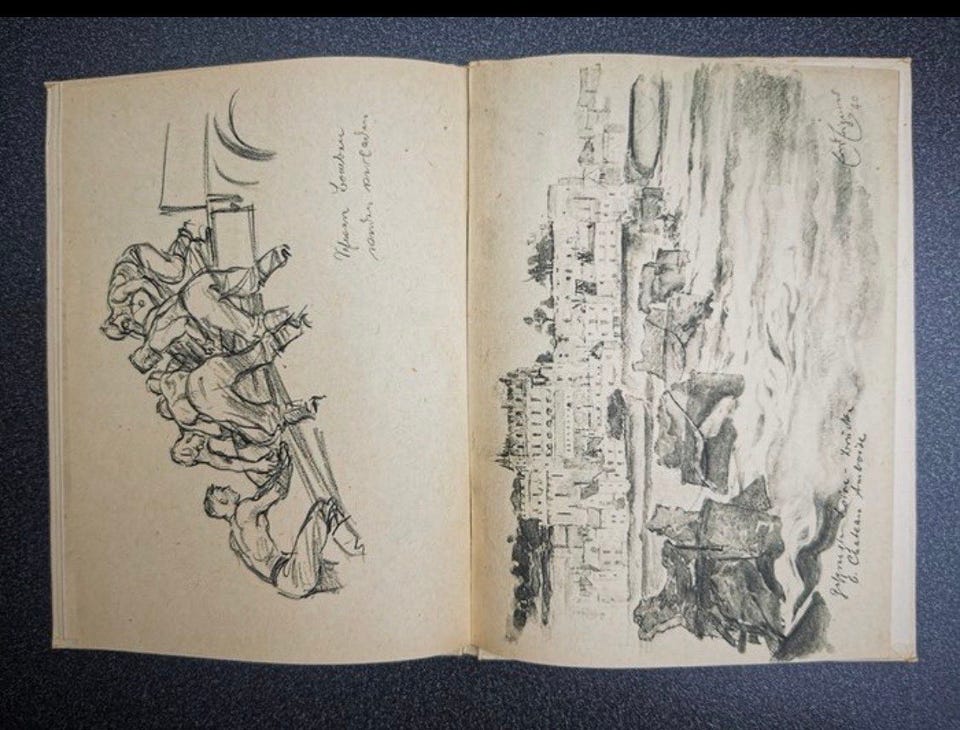 Schwere Bomben
werden verladen
40
Gesprengte Loire-Brücke
b. Chateau Amboise